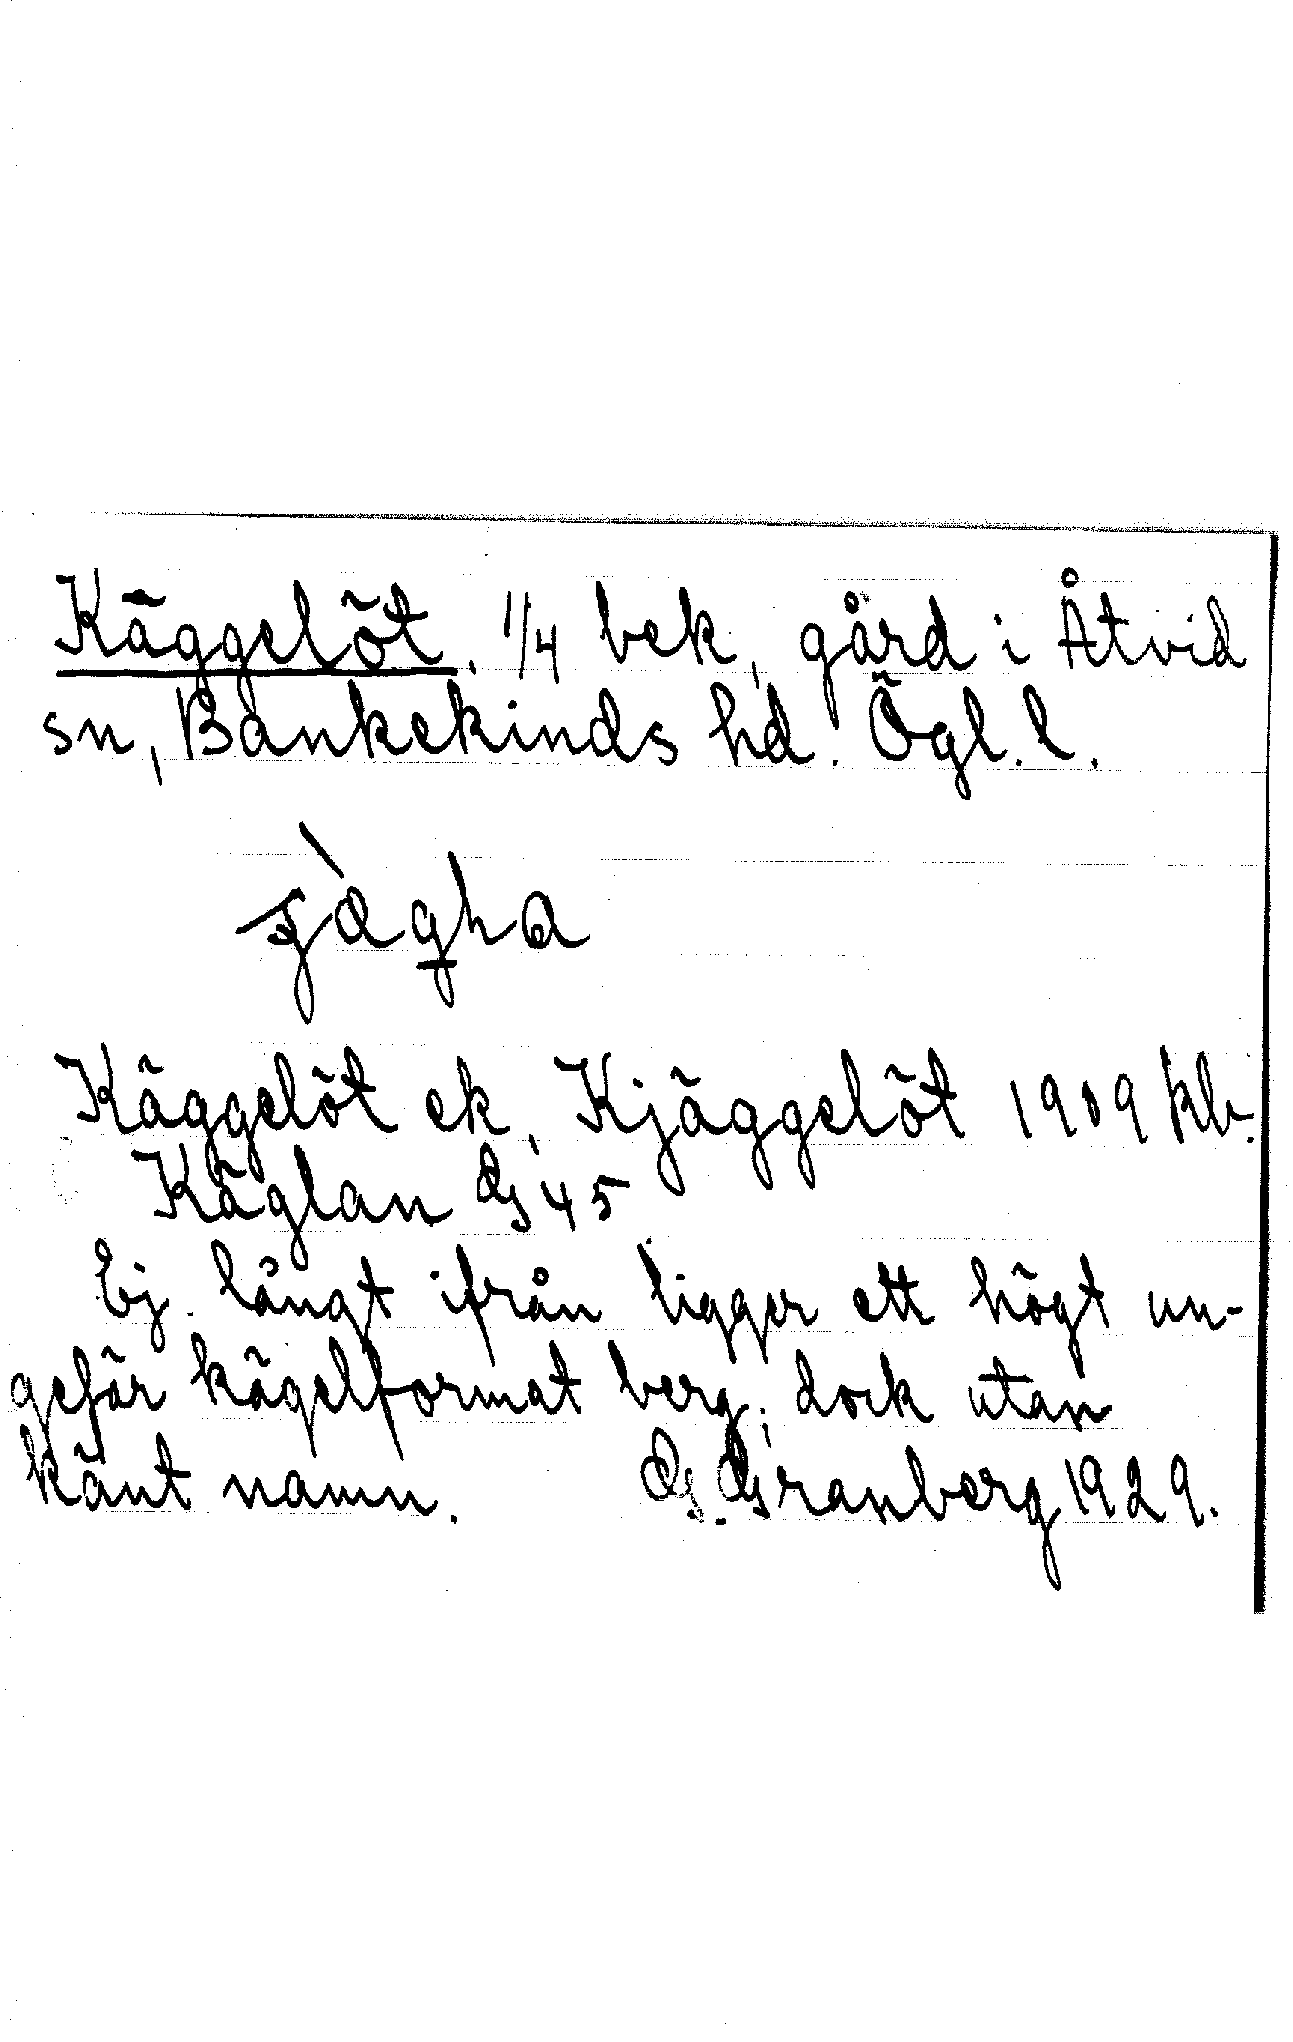 Käggelöt, 1/4 bek, gård i Åtvid
sn, Bankekinds hd. Ögl. l.
Käggelöt ek, Kjäggelöt 1909 kb.
Käglan GS 45
Ej långt ifrån ligger ett högt un-
gefär kägelformat berg; dock utan
känt namn. G. Granberg 1929.